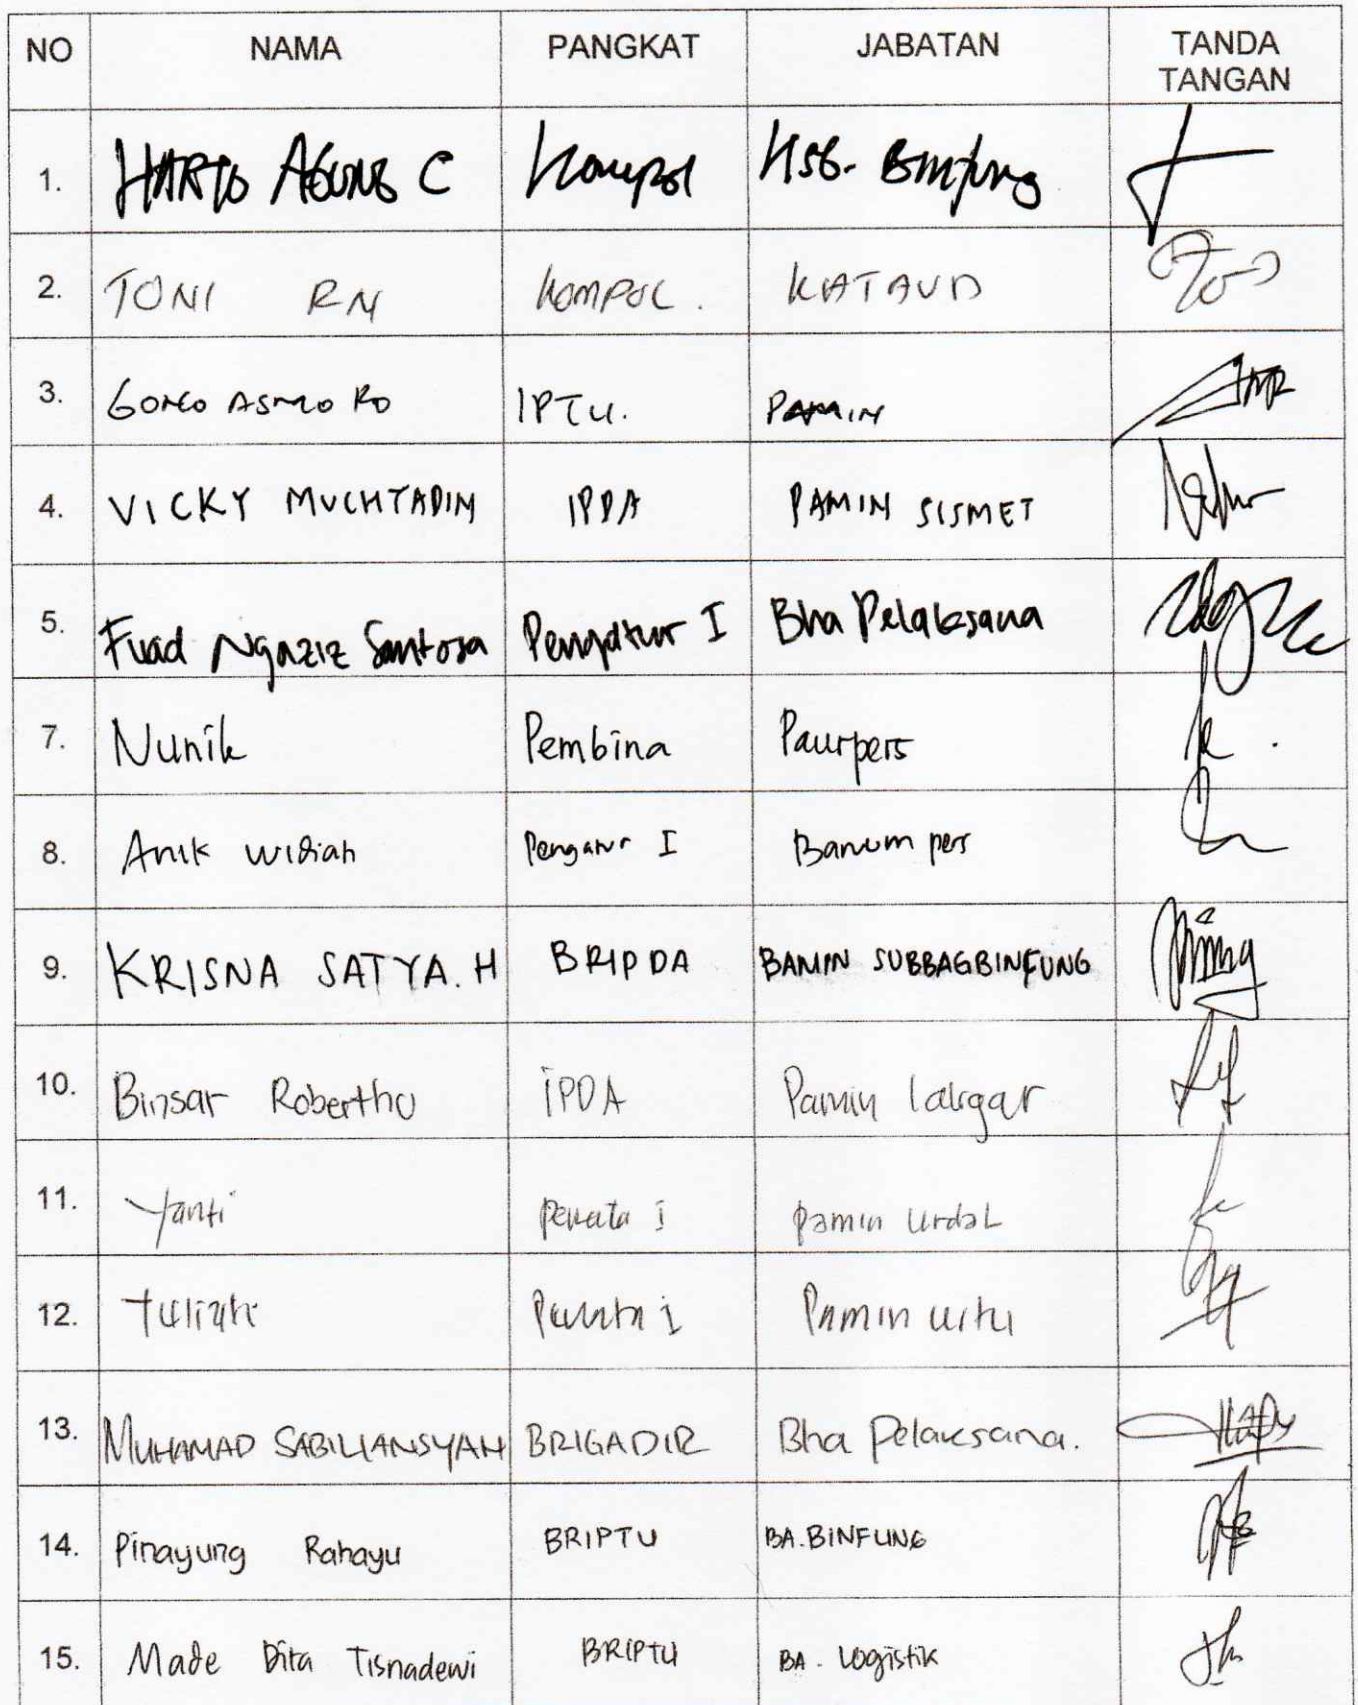 NO NAMA PANGKAT JABATAN TANDA
TANGAN
1. HARTO AGUNG C Kompol KSB. Binfung
2. TONI RN KOMPOL. KATAUD
3. GONGO ASMORO IPTU. PAMIN
4. VICKY MUCHTADIN IPDA PAMIN SISMET
5. Fuad Ngaziz Santosa Pengatur I Bha Pelaksana
7. Nunik Pembina Paurpers
8. Anik Widiah Pengatur I Banum pers
9. KRISNA SATYA.H BRIPDA BAMIN SUBBAGBINFUNG
10. Binsar Robertho IPDA Pamin lakgar
11. Yanti Penata i Pamin Urdal
12. Yuliati Penata i Pamin urtu
13. MUHAMAD SABILIANSYAH BRIGADIR Bha Pelaksana.
14. Pinayung Rahayu BRIPTU BA.BINFUNG
15. Made Dita Tisnadewi BRIPTU BA. Logistik